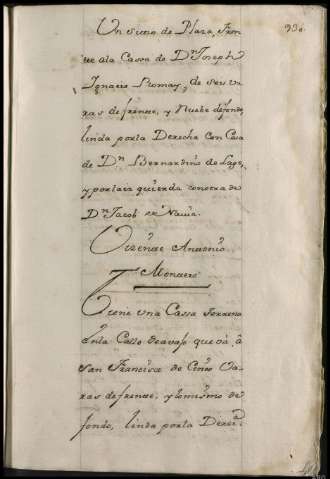 930.
Un suelo de Plaza, fron
te ala Cassa de Dⁿ Joseph
Ignacio Romay, de seis va
ras defrente, y Nuebe defondo,
linda porla Derecha Con Casa
de Dⁿ Bernardino de Lago,
y porla izquierda conotra de
Dⁿ Jacob de Navia.
Antonio
Montero
Tiene una Cassa Terrena
Enla Calle deavajo que vá, â
San Francisco de Cinco Va-
ras defrente, y lomismo de
fondo, linda porla Derecha